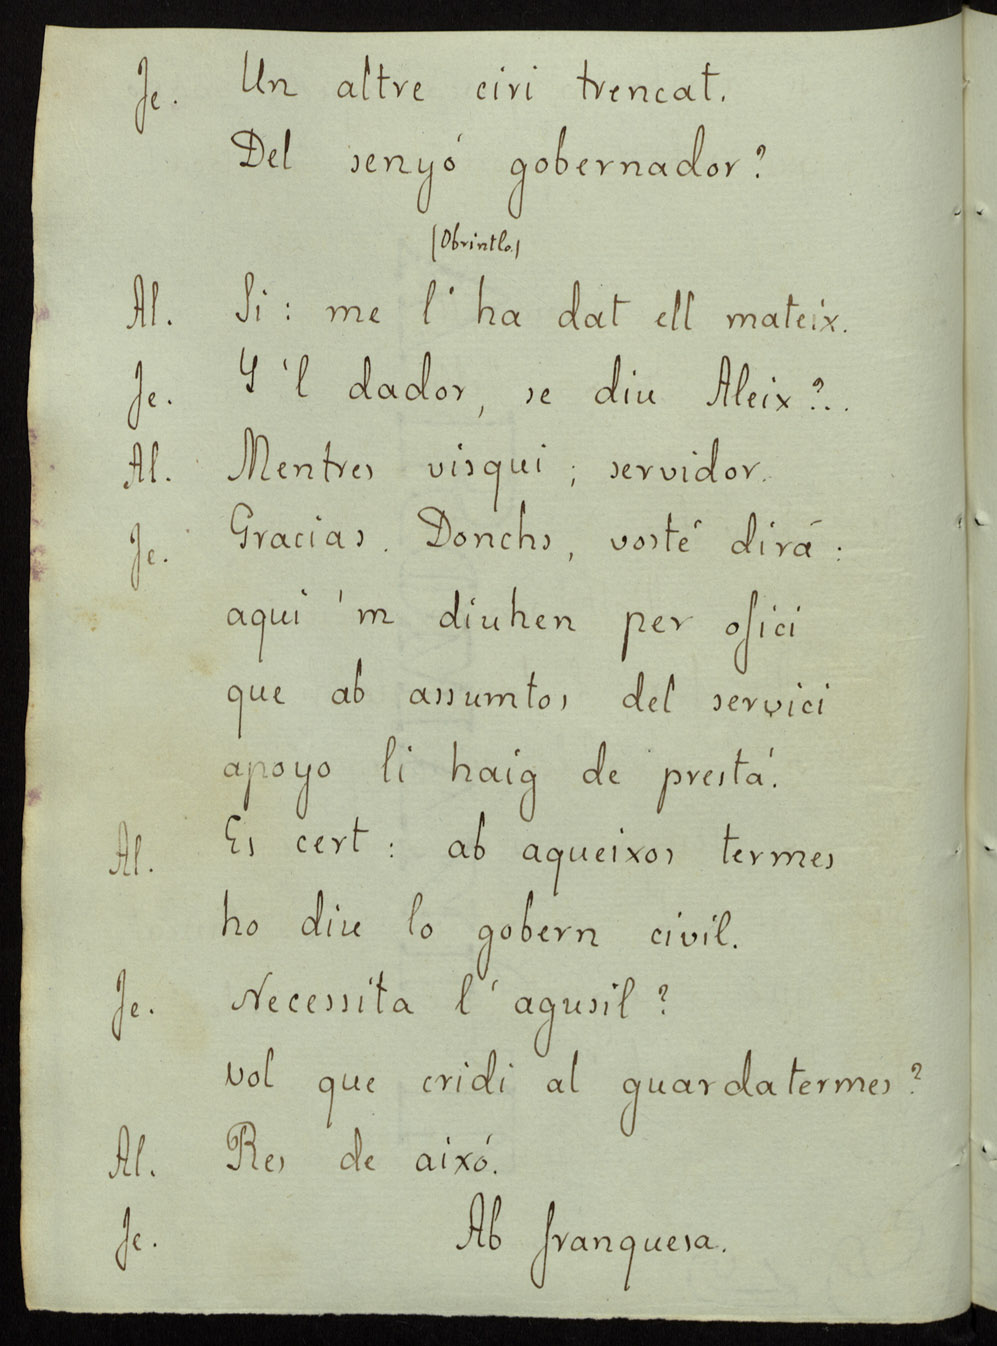 Je. Un altre ciri trencat.
Del senyó gobernador?
(Obrintlo.)
Al. Si: me l'ha dat ell mateix.
Je. Y 'l dador, se diu Aleix?..
Al. Mentres visqui; servidor.
Je. Gracias. Donchs, vosté dirá:
aqui 'm diuhen per ofici
que ab assumtos del servici
apoyo li haig de prestá.
Al. Es cert: ab aqueixos termes
ho diu lo gobern civil.
Je. Necessita l'agusil?
vol que cridi al guardatermes?
Al. Res de aixó.
Je. Ab franquesa.